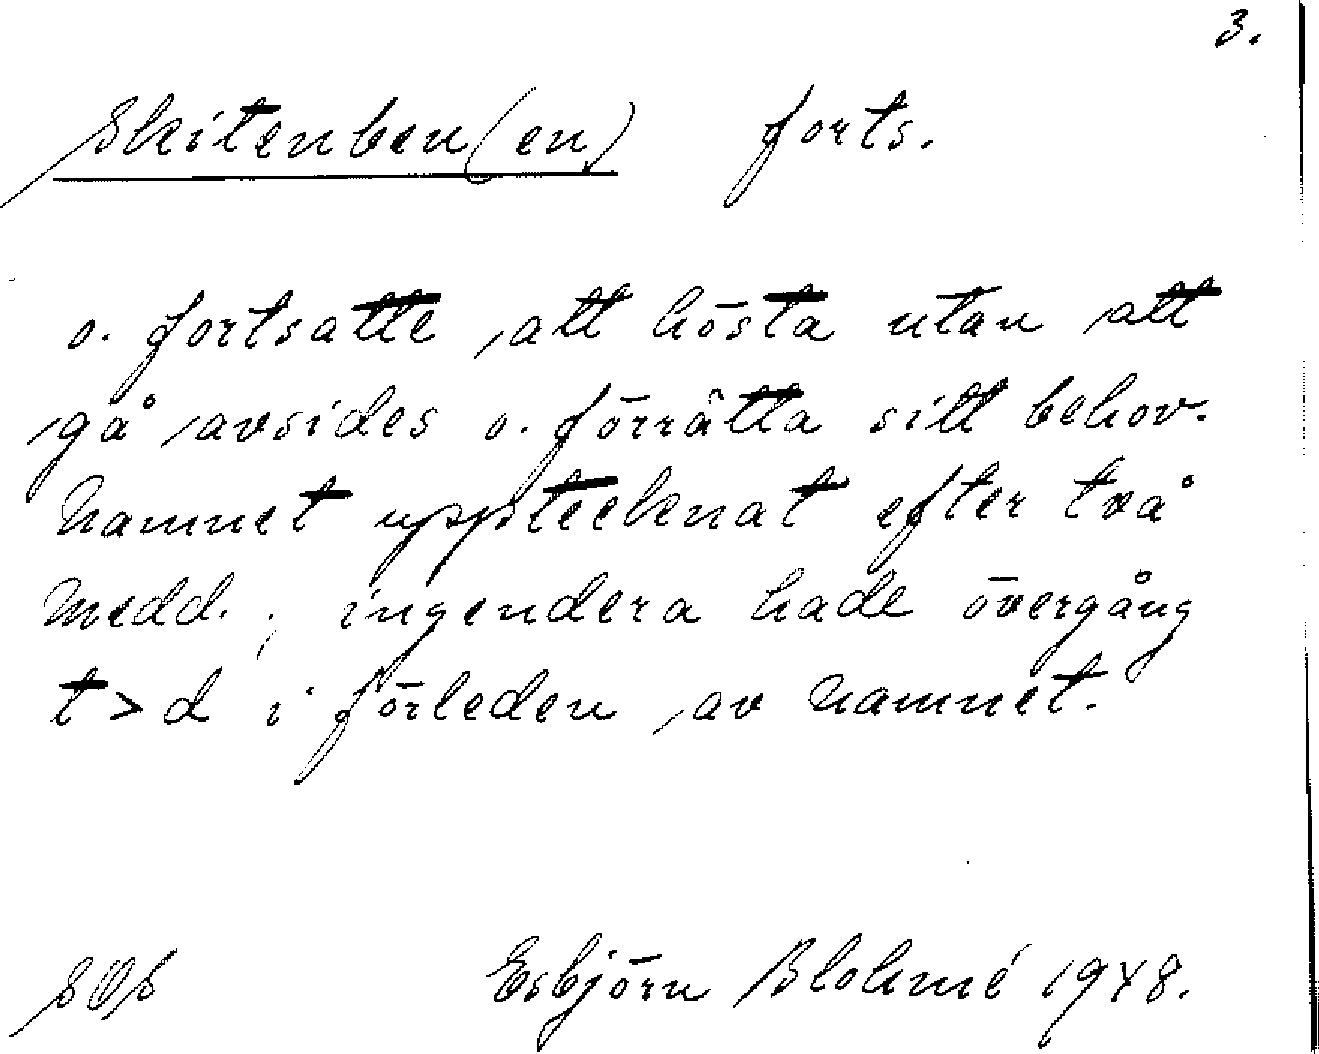 3.
Skitenben(en) forts.
o. fortsatte att hösta utan att
gå avsides o. förrätta sitt behov.
Namnet upptecknat efter två
medd.; ingendera hade övergång
t>d i förleden av namnet.
Esbjörn Blohmé 1948.